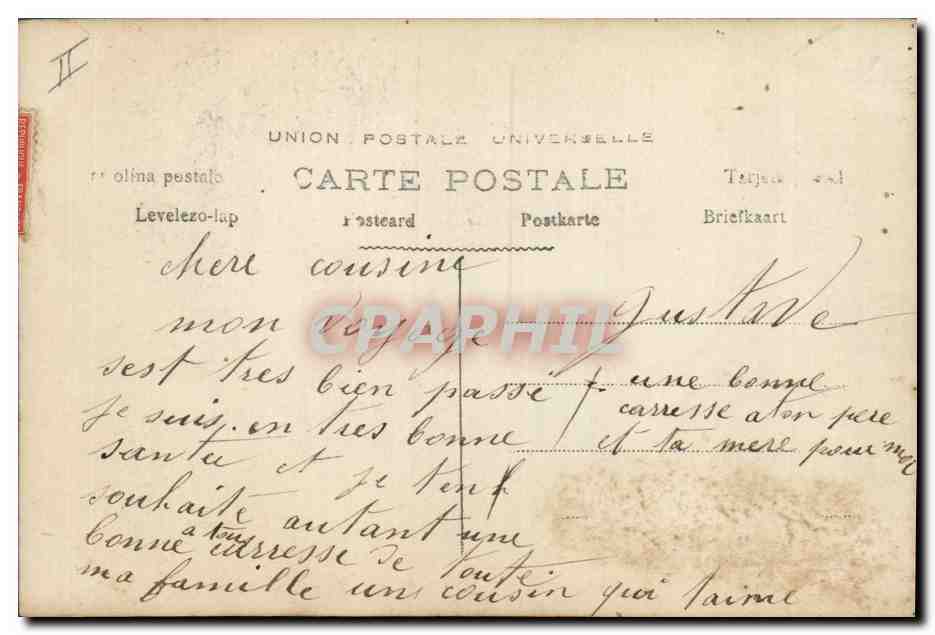 II
UNION POSTALE UNIVERSELLE
CARTE POSTALE
olina postale
Levelezo-lap
Postcard
Postkarte
Briefkaart
CPAPHIL
chere cousine
mon voyage
sest tres bien passé
je suis en tres bonne
sante et je ten
souhaite autant une
bonne a tous carresse de toute
ma famille un cousin qui taime
gustave
une bonne
carresse a ton pere
et ta mere pour moi